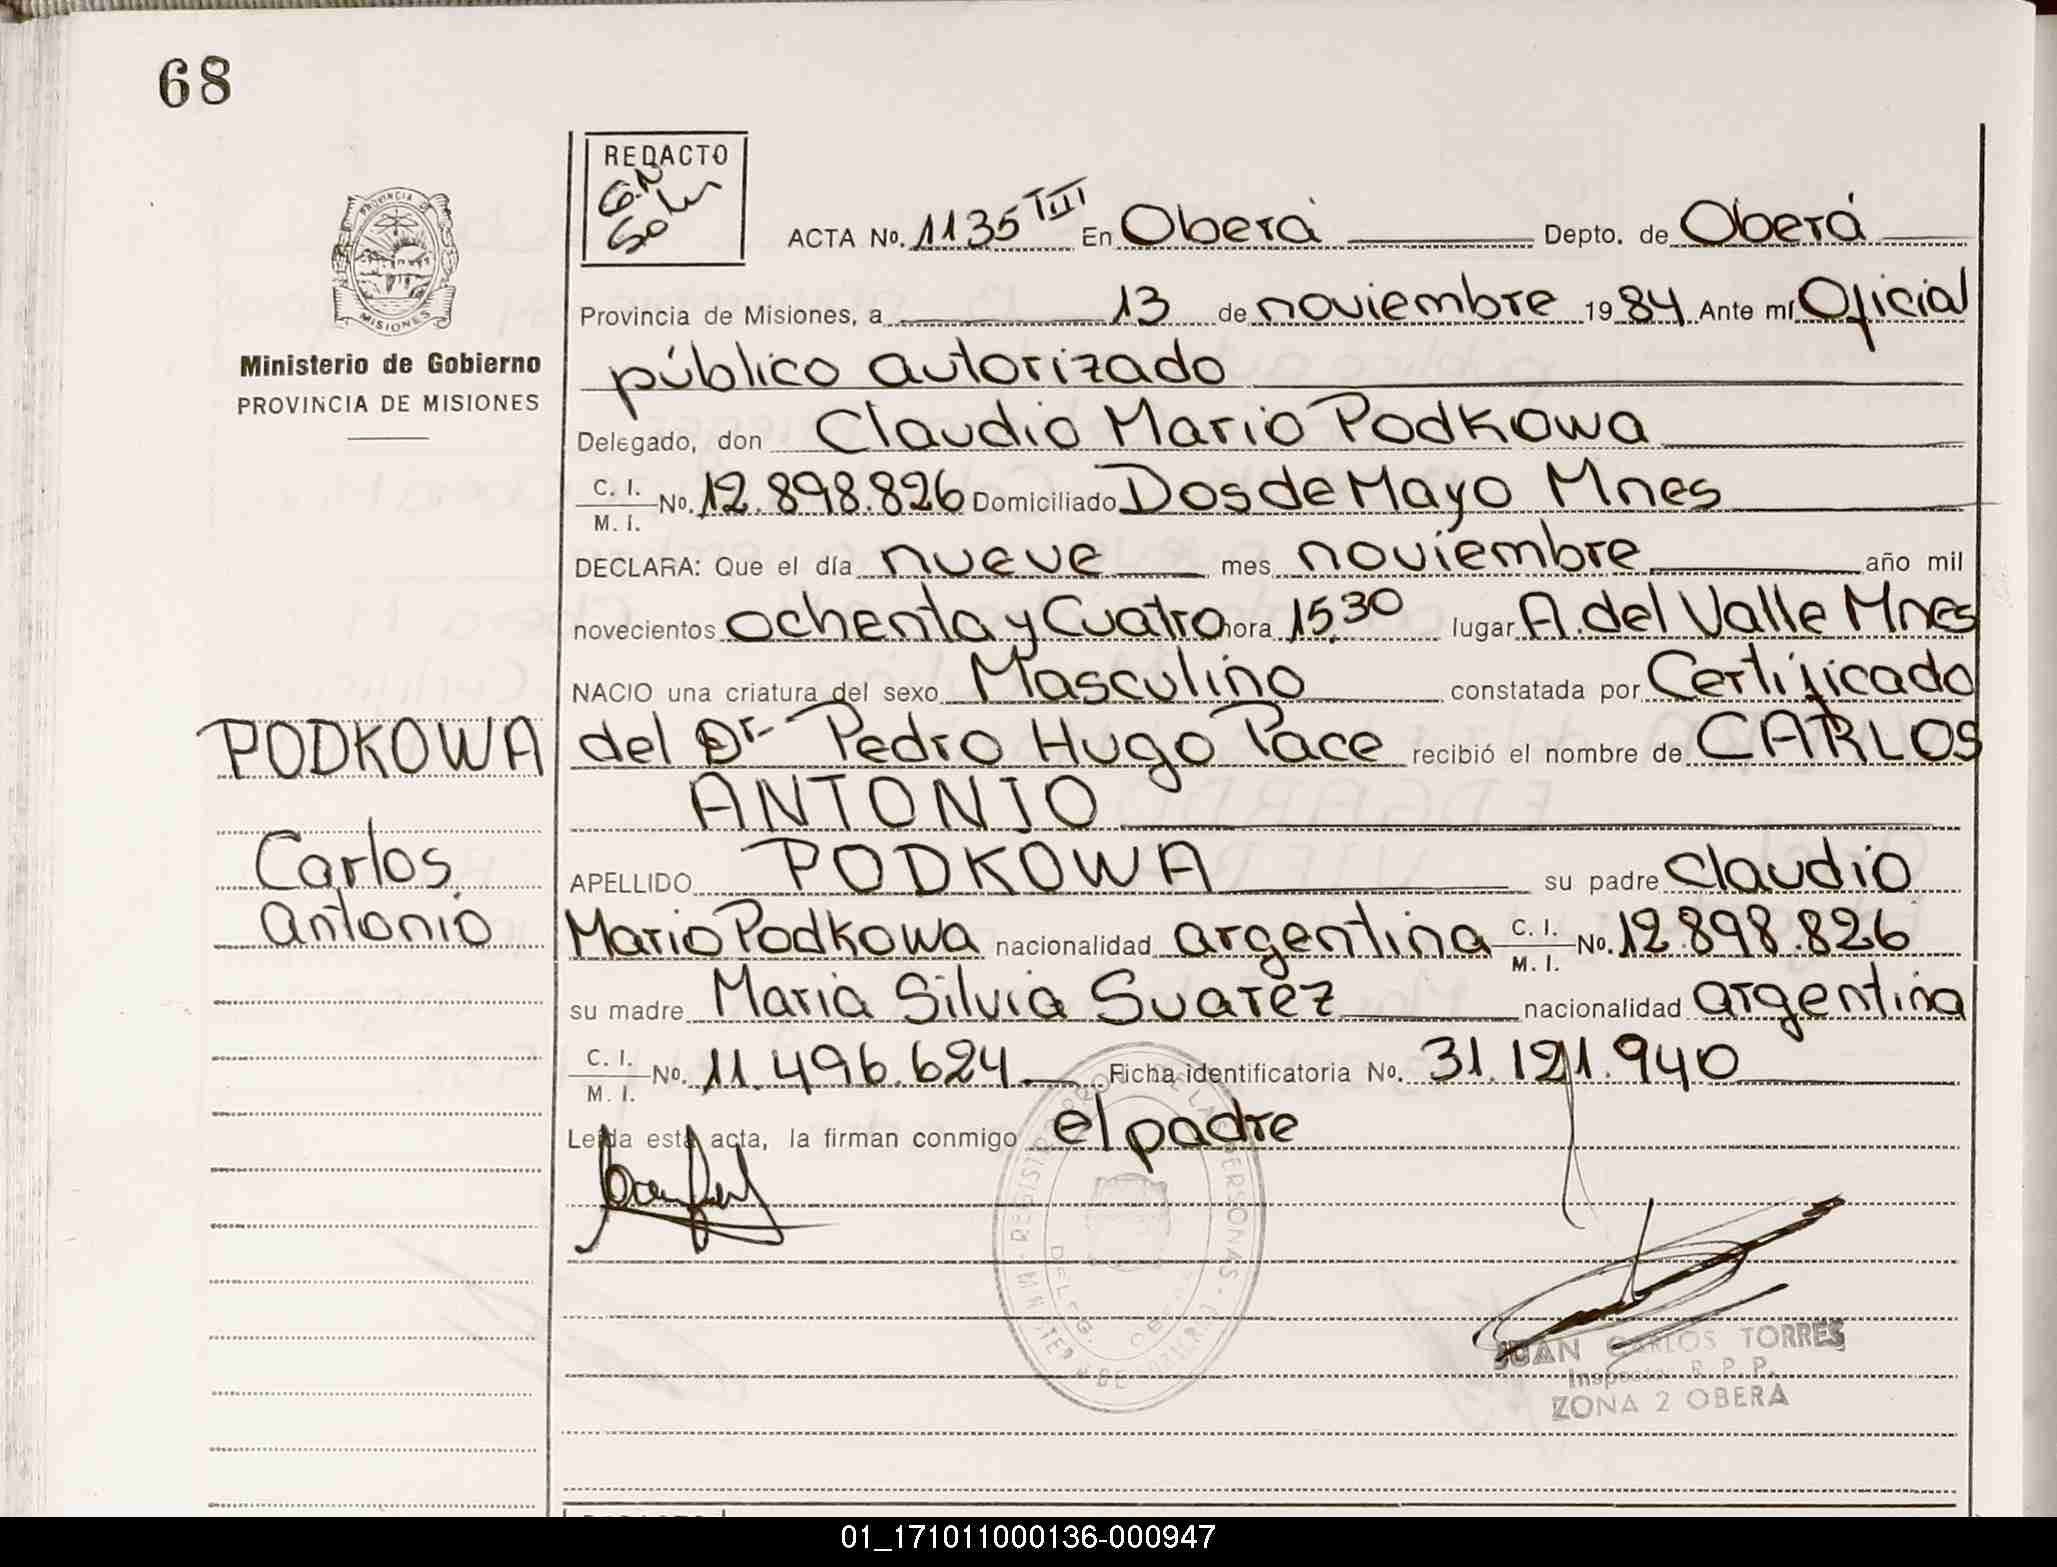 68
REDACTO
PROVINCIA DE
MISIONES
Ministerio de Gobierno
PROVINCIA DE MISIONES
ACTA No. 1135 TIII En Oberá Depto. de Oberá
Provincia de Misiones, a 13 de noviembre 1984 Ante mí Oficial
público autorizado
Delegado, don Claudio Mario Podkowa
C. I. / M. I. No. 12.898.826 Domiciliado Dos de Mayo Mnes
DECLARA: Que el día nueve mes noviembre año mil
novecientos ochenta y Cuatro hora 15,30 lugar A. del Valle Mnes
NACIO una criatura del sexo Masculino constatada por Certificado
PODKOWA
del Dr. Pedro Hugo Pace recibió el nombre de CARLOS
ANTONIO
Carlos
Antonio
APELLIDO PODKOWA su padre Claudio
Mario Podkowa nacionalidad argentina C. I. / M. I. No. 12.898.826
su madre Maria Silvia Suarez nacionalidad argentina
C. I. / M. I. No. 11.496.624 Ficha identificatoria No. 31.121.940
Leída esta acta, la firman conmigo el padre
JUAN CARLOS TORRES
Inspector R. P. P.
ZONA 2 OBERA
01_171011000136-000947